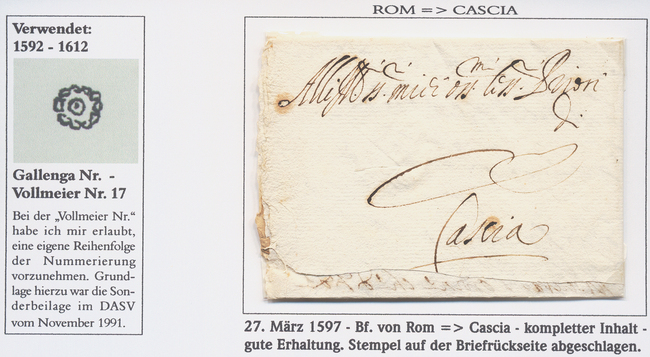 ROM => CASCIA
Verwendet:
1592 - 1612
Gallenga Nr. -
Vollmeier Nr. 17
Bei der „Vollmeier Nr.“
habe ich mir erlaubt,
eine eigene Reihenfolge
der Nummerierung
vorzunehmen. Grund-
lage hierzu war die Son-
derbeilage im DASV
vom November 1991.
Priori
Cascia
27. März 1597 - Bf. von Rom => Cascia - kompletter Inhalt -
gute Erhaltung. Stempel auf der Briefrückseite abgeschlagen.